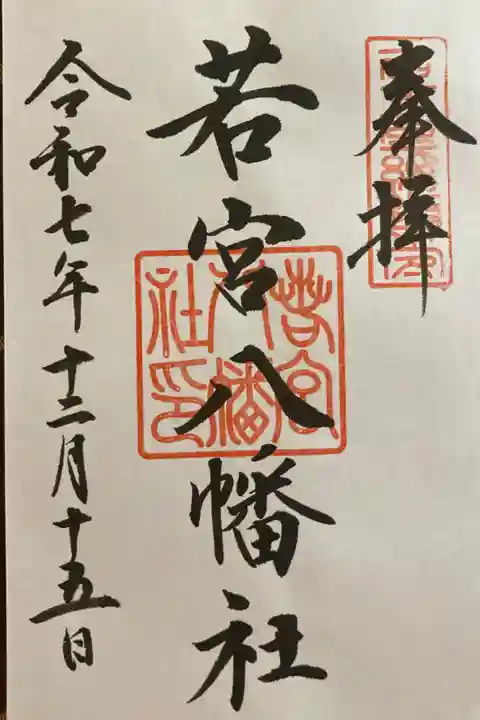 奉拝
若宮八幡社
若宮八幡社印
令和七年十二月十五日